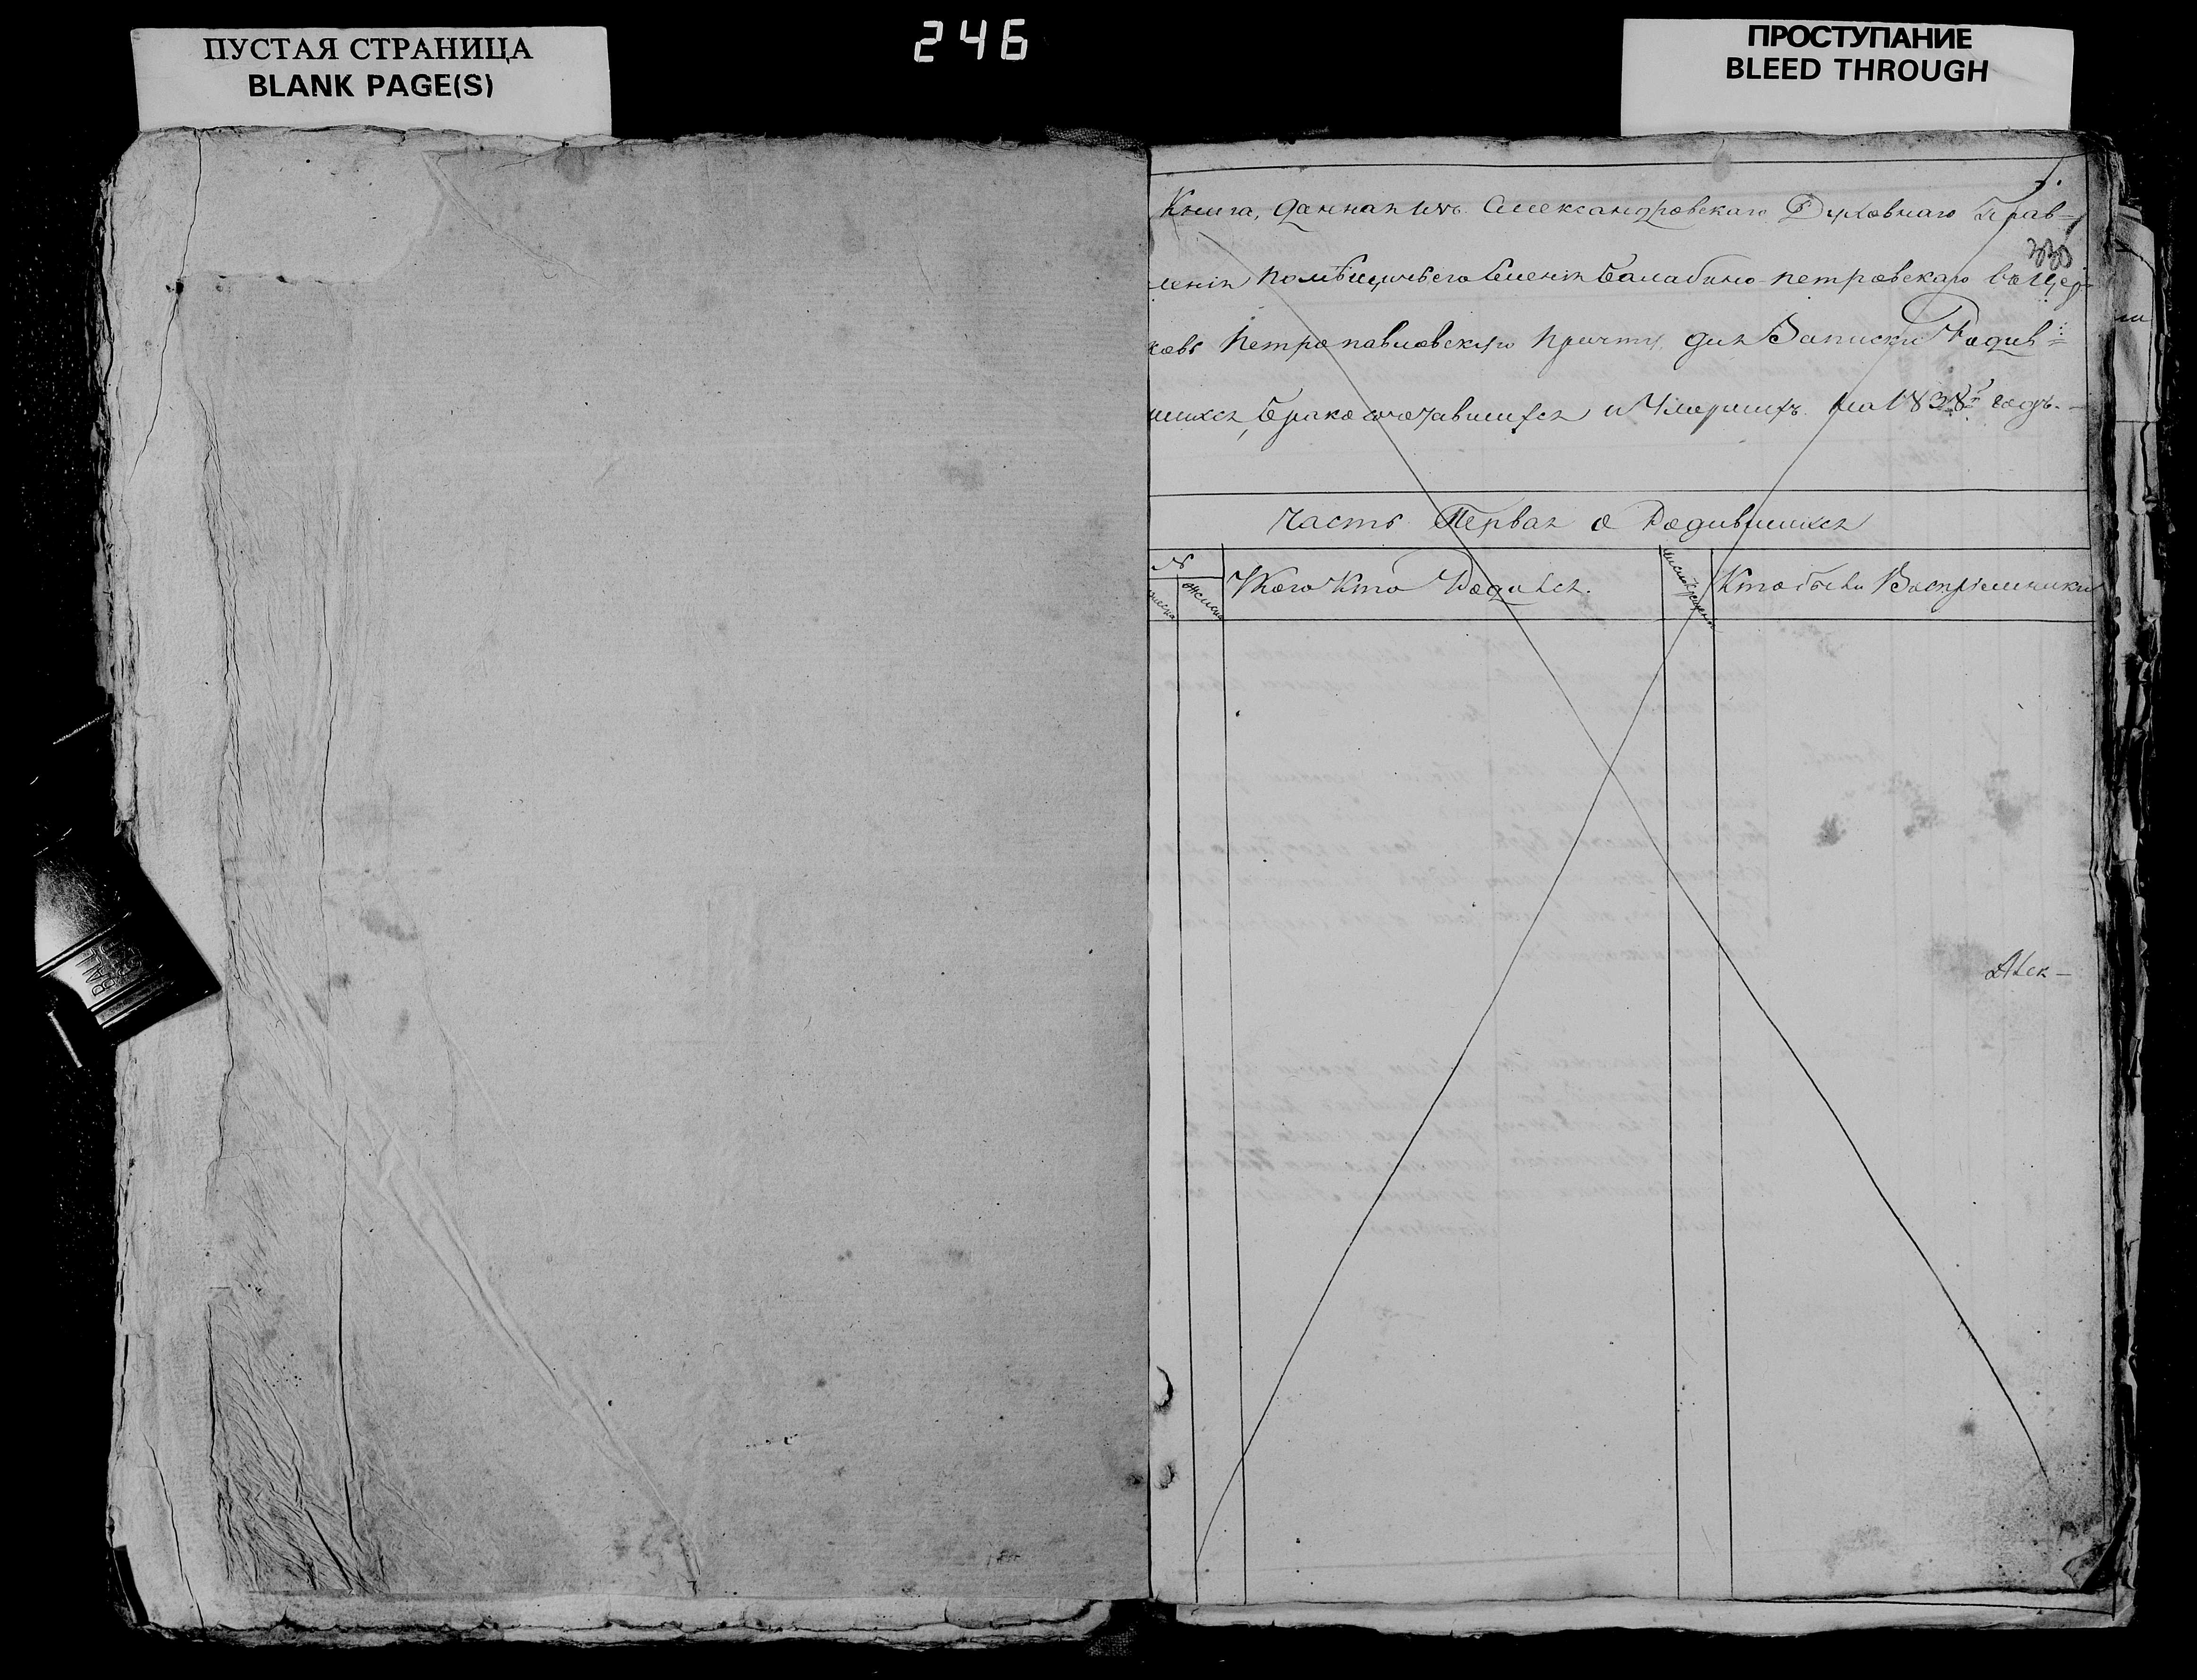 ПУСТАЯ СТРАНИЦА
BLANK PAGE(S)
246
ПРОСТУПАНИЕ
BLEED THROUGH
1.
Книга, данная изъ Александровскаго Духовнаго Прав-
330
ленія помѣщичьего имѣнія Балабино-петровскаго въ Цер-
ковь Петропавловскую причту для Записки Родив-
шихся, Бракосочетавшихся и Умершихъ на 1838й годъ.
Часть Первая о Родившихся
№
У кого кто Родился.
Кто были Воспріемники
женска
Алек-